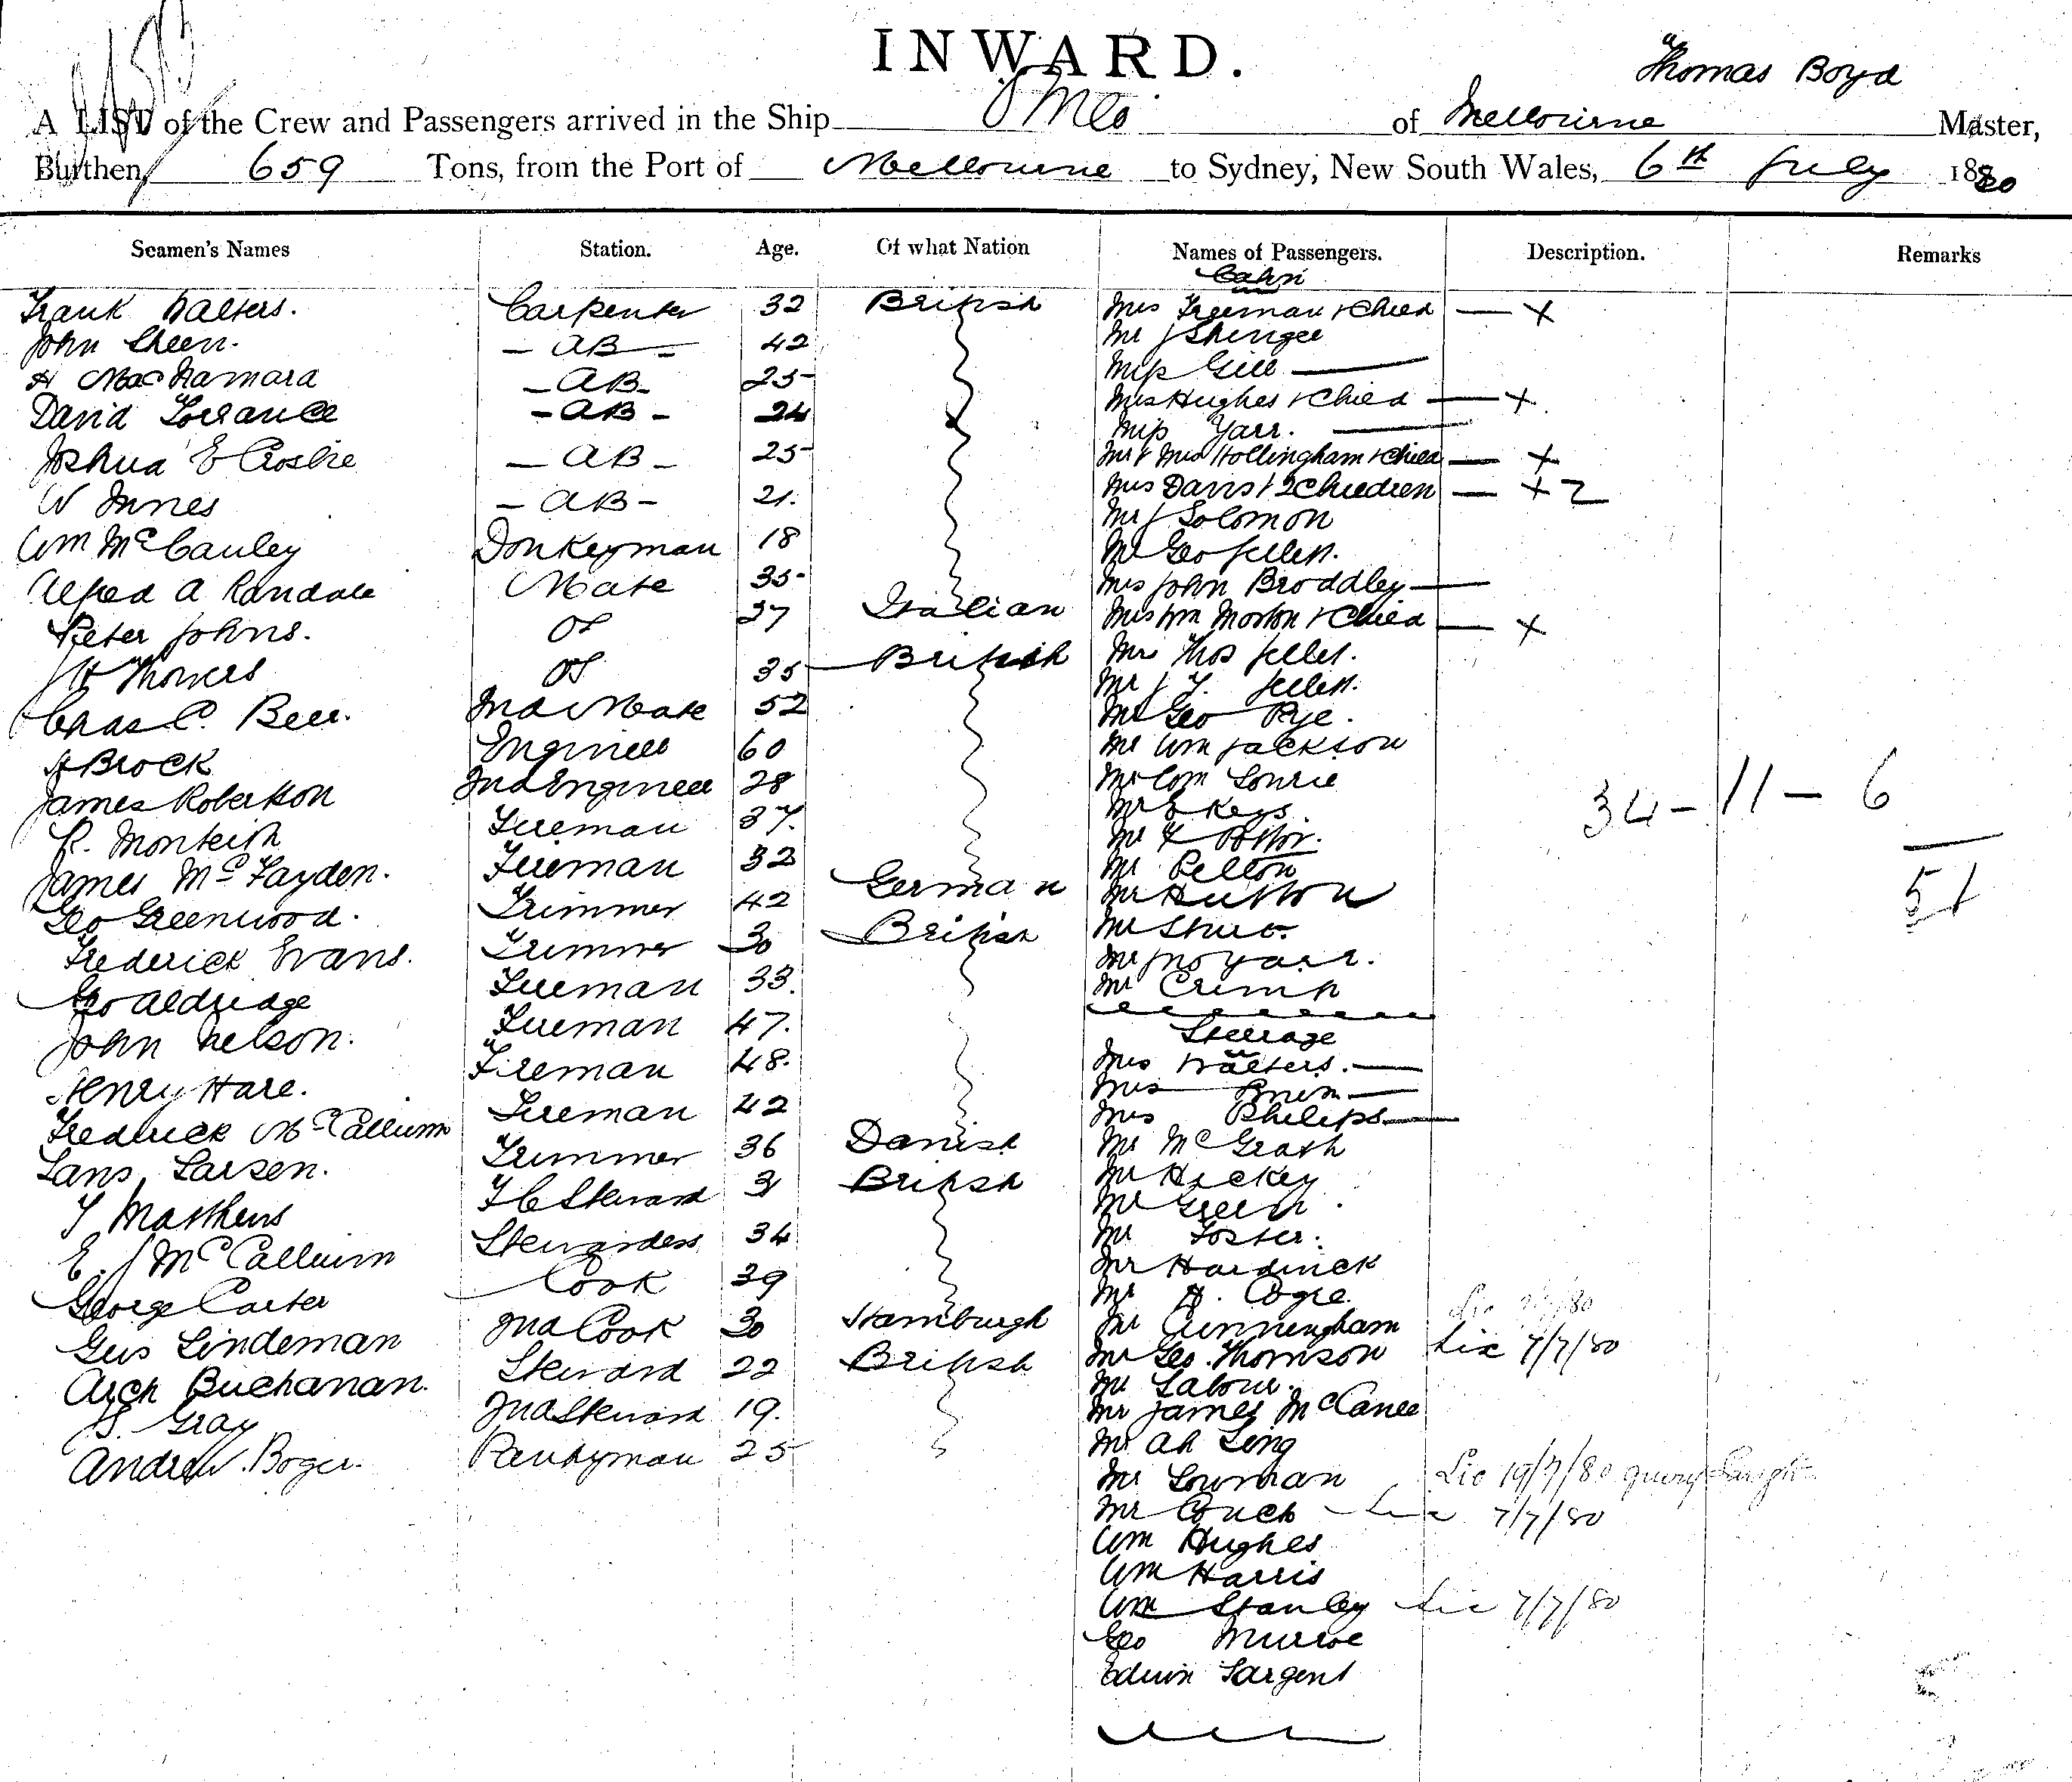 INWARD.
Thomas Boyd
A LIST of the Crew and Passengers arrived in the Ship of Melbourne Master,
Burthen 659 Tons, from the Port of Melbourne to Sydney, New South Wales, 6th July 1880
Seamen's Names Station. Age. Of what Nation Names of Passengers. Description. Remarks
Cabin
Frank Walters. Carpenter 32 British Mrs Freeman & Child — x
John Sheen. — AB — 42 Mr J
H MacNamara — AB — 25 Miss Gill —
David Torrance — AB — 24 Mrs Hughes & Child — x
Miss Yarr. —
Joshua E Crosbie — AB — 25 Mr & Mrs Hollingham & Child — x
W Innes — AB — 21. Mrs Davis & 2 Children — + 2
Mr J Solomon
Wm McCauley Donkeyman 18 Mr Geo Jellett.
Alfred A Randall Mate 35 Mrs John Broddley —
Peter Johns. OS 27 Italian Mrs Wm Morton & Child — x
Mr Thos Jellett.
OS 35 British Mr J Y. Jellett.
Chas C. Beer. 2nd Mate 52 Mr Geo Pye.
H Brock Engineer 60 Mr Wm Jackson
James Robertson 2nd Engineer 28 Mr Wm Lourie
R. Monteith Fireman 37. Mr E Keys.
34 — 11 — 6
Mr
James McFayden. Fireman 32 Mr Pelton
51
Geo Greenwood. Trimmer 42 German Mr Hutton
Frederick Evans. Trimmer 30 British Mr
Mr Jno Yarr.
Geo Aldridge Fireman 33. Mr Crimp
John Nelson. Fireman 47. Steerage
Henry Hare. Fireman 48. Mrs Walters. —
Mrs —
Frederick McCallum Fireman 42 Mrs Philips —
Lans Larsen. Trimmer 36 Danish Mr McGrath
T Matthews F C Steward 31 British Mr Hickey
Mr Green.
E. J McCallum Stewardess 34 Mr Foster.
Mr Hardwick
George Carter Cook 39 Mr H. Cogre.
Gus Lindeman 2nd Cook 30 Hamburgh Mr Cunningham
Arch Buchanan. Steward 22 British Mr Geo. Thomson Lic 7/7/80
Mr Labour.
S. Gray 2nd Steward 19. Mr James McCance
Andrew Boger. Pantryman 25 Mr Ah Ling
Mr Lowman Lic 19/7/80 query
Mr Couch — Lic 7/7/80
Wm Hughes
Wm Harris
Wm Stanley Lic 7/7/80
Geo Munroe
Edwin Sargent